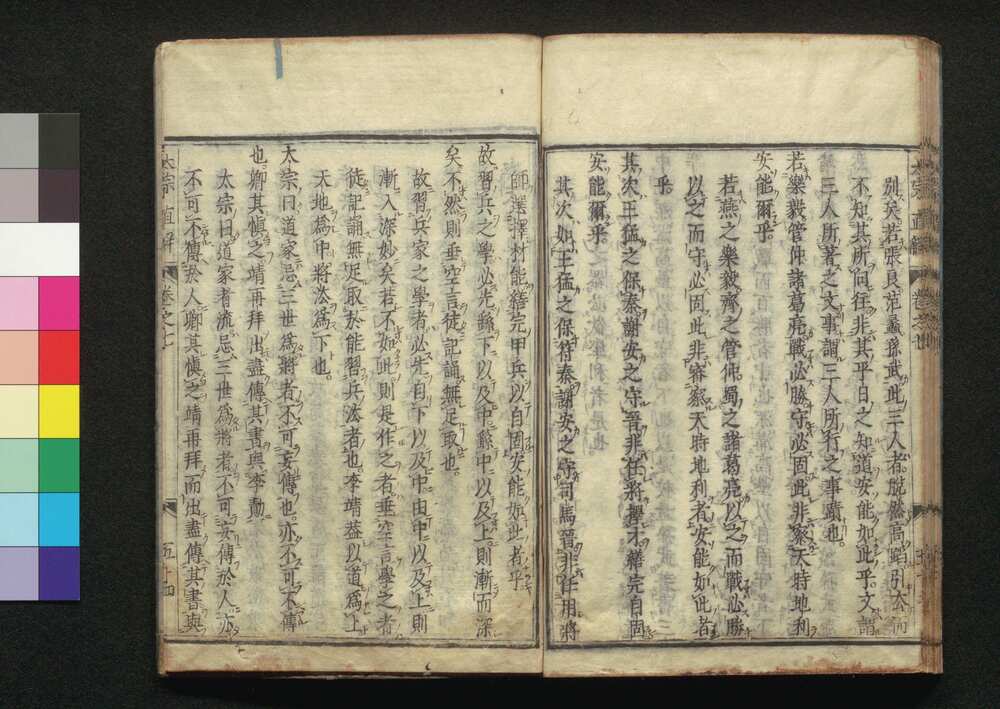 別矣若張良范蠡孫武此三人者脫然高蹈引去而
不知其所向往非其平日之知道安能如此乎文謂
三人所著之文事謂三人所行之事蹟也
若樂毅管仲諸葛亮戰必勝守必固此非察天時地利
安能爾乎
若燕之樂毅齊之管仲蜀之諸葛亮以之而戰必勝
以之而守必固此非審察天時地利者安能如此者
乎
其次王猛之保秦謝安之守晉非任將擇才繕完自固
安能爾乎
其次如王猛之保符秦謝安之守司馬晉非任用將
師選擇材能繕完甲兵以自固安能如此者乎
故習兵之學必先繇下以及中繇中以及上則漸而深
矣不然則垂空言徒記誦無足取也
故習兵家之學者必先自下以及中由中以及上則
漸入深妙矣若不如此則是作之者垂空言學之者
徒記誦無足取於能習兵法者也李靖葢以道爲上
天地爲中將法爲下也
太宗曰道家忌三世爲將者不可妄傳也亦不可不傳
也卿其愼之靖再拜出盡傳其書與李勣
太宗曰道家者流忌三世爲將者不可妄傳於人亦
不可不傳於人卿其愼之靖再拜而出盡傳其書與
太宗直解 卷之下 五十四